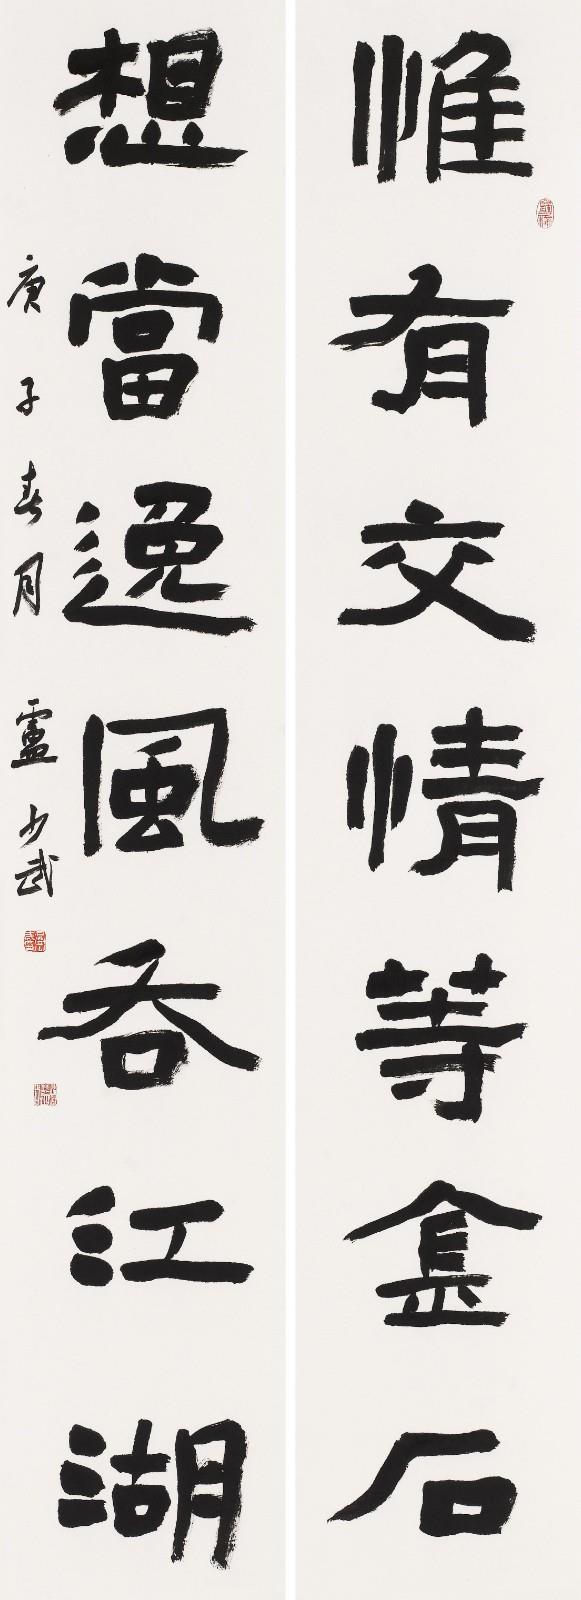 惟有交情等金石
想當逸風吞江湖
庚子春月 盧少武